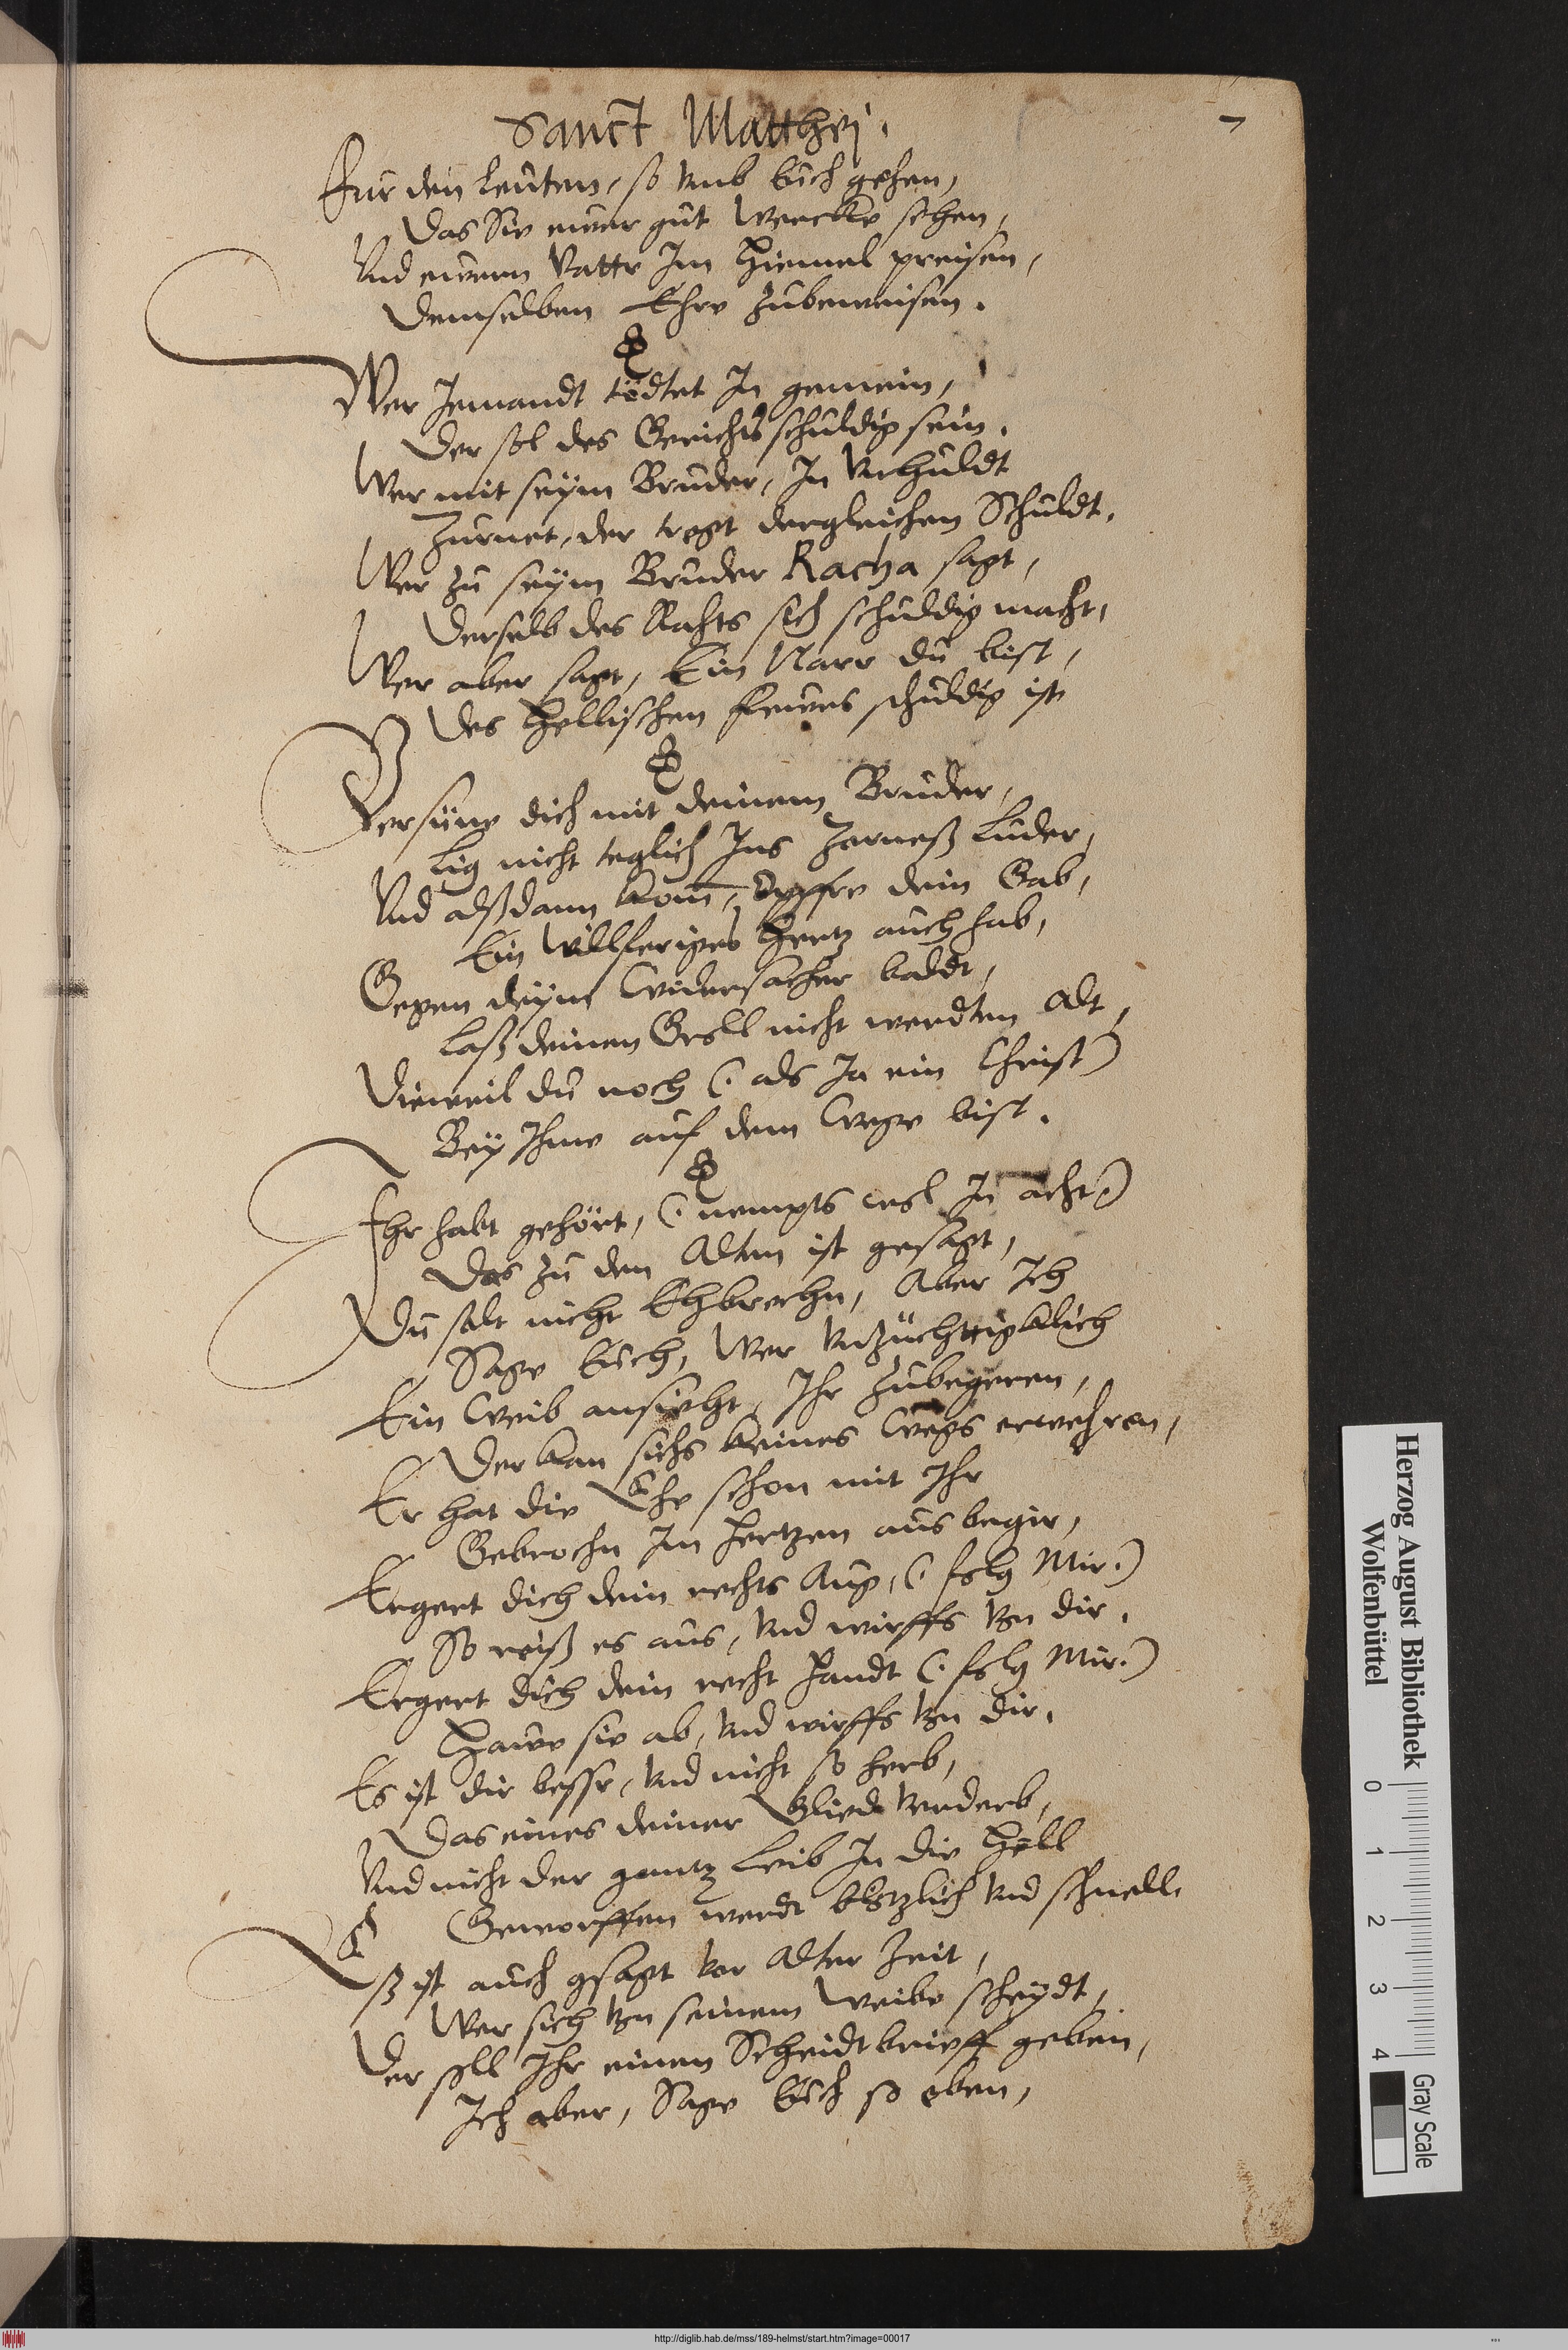 7
Sanct Matthej.
Fur den Leuten, so vmb Euch gehen,
Das Sie ewer gut Wercke sehen,
Vnd ewern Vattr Im Hiemel preisen,
Demselben Ehre zubeweisen.
Wer Jemandt tödtet In gemein,
Der sol des Gerichts schuldig sein.
Wer mit seym Bruder, In Vnhuldt
Zurnet, der tregt dergleichen Schuldt.
Wer zu seym Bruder Racha sagt,
Derselb des Rahts sich schuldig macht,
Wer aber sagt, Ein Narr du bist,
Des Hellischen fewrs schuldig ist
Versüne dich mit deinem Bruder,
Lig nicht teglich Ins Zorneß Luder,
Vnd alßdann kom, Opffre dein Gab,
Ein Willferiges Hertz auch hab,
Gegen deym Widersacher baldt,
Laß deinen Groll nicht werdten alt,
Dieweil du noch (. als Ja ein Christ)
Bey Ihme auf dem Wege bist.
Ihr habt gehört, (. nempts wol In acht.)
Das zu den Alten ist gesagt,
Du solt nicht Ehbrechn, Aber Ich
Sage Euch, Wer Vnzüchttigklich
Ein Weib ansieht, Ihr zubegeren,
Der kan sichs keines Wegs erwehren,
Er hat die Ehe schon mit Ihr
Gebrochn Im Hertzen aus begir,
Ergert dich dein rechts Aug, (. folg Mir.)
So reiß es aus, vnd wirffs von dir.
Ergert dich dein recht Handt (. folg Mir.)
Hawe sie ab, vnd wirffs von dir.
Es ist dir bessr, vnd nicht so herb,
Das eines deiner Gliedt verderb,
Vnd nicht der gantz Leib In die Hell
Geworffen werdt blötzlich vnd schnell.
Eß ist auch gsagt vor alter Zeit,
Wer sich von seinem Weibe scheydt,
Der soll Ihr einen Scheidtbrieff geben,
Ich aber, Sage Euch so eben,
Herzog August Bibliothek
Wolfenbüttel
0 1 2 3 4
Gray Scale
http://diglib.hab.de/mss/189-helmst/start.htm?image=00017